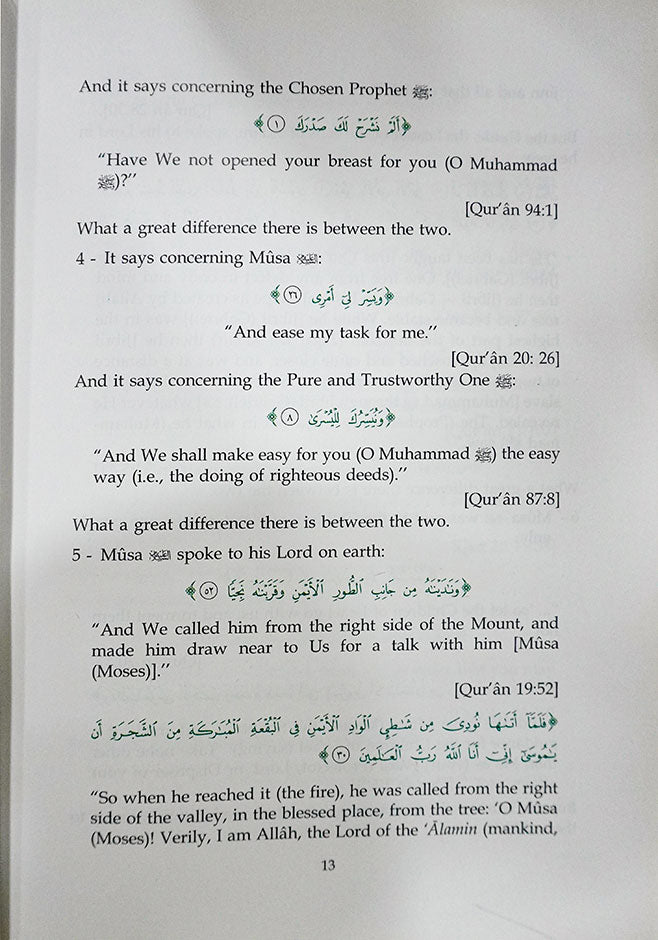 And it says concerning the Chosen Prophet ﷺ:
﴿أَلَمْ نَشْرَحْ لَكَ صَدْرَكَ ١﴾
“Have We not opened your breast for you (O Muhammad
ﷺ)?”
[Qur’ân 94:1]
What a great difference there is between the two.
4 - It says concerning Mûsa:
﴿وَيَسِّرْ لِىٓ أَمْرِى ٢٦﴾
“And ease my task for me.”
[Qur’ân 20: 26]
And it says concerning the Pure and Trustworthy One ﷺ:
﴿وَنُيَسِّرُكَ لِلْيُسْرَىٰ ٨﴾
“And We shall make easy for you (O Muhammad ﷺ) the easy
way (i.e., the doing of righteous deeds).”
[Qur’ân 87:8]
What a great difference there is between the two.
5 - Mûsa spoke to his Lord on earth:
﴿وَنَٰدَيْنَٰهُ مِن جَانِبِ ٱلطُّورِ ٱلْأَيْمَنِ وَقَرَّبْنَٰهُ نَجِيًّا ٥٢﴾
“And We called him from the right side of the Mount, and
made him draw near to Us for a talk with him [Mûsa
(Moses)].”
[Qur’ân 19:52]
﴿فَلَمَّآ أَتَىٰهَا نُودِىَ مِن شَٰطِئِ ٱلْوَادِ ٱلْأَيْمَنِ فِى ٱلْبُقْعَةِ ٱلْمُبَٰرَكَةِ مِنَ ٱلشَّجَرَةِ أَن
يَٰمُوسَىٰٓ إِنِّىٓ أَنَا ٱللَّهُ رَبُّ ٱلْعَٰلَمِينَ ٣٠﴾
“So when he reached it (the fire), he was called from the right
side of the valley, in the blessed place, from the tree: ‘O Mûsa
(Moses)! Verily, I am Allâh, the Lord of the ‘Âlamin (mankind,
13